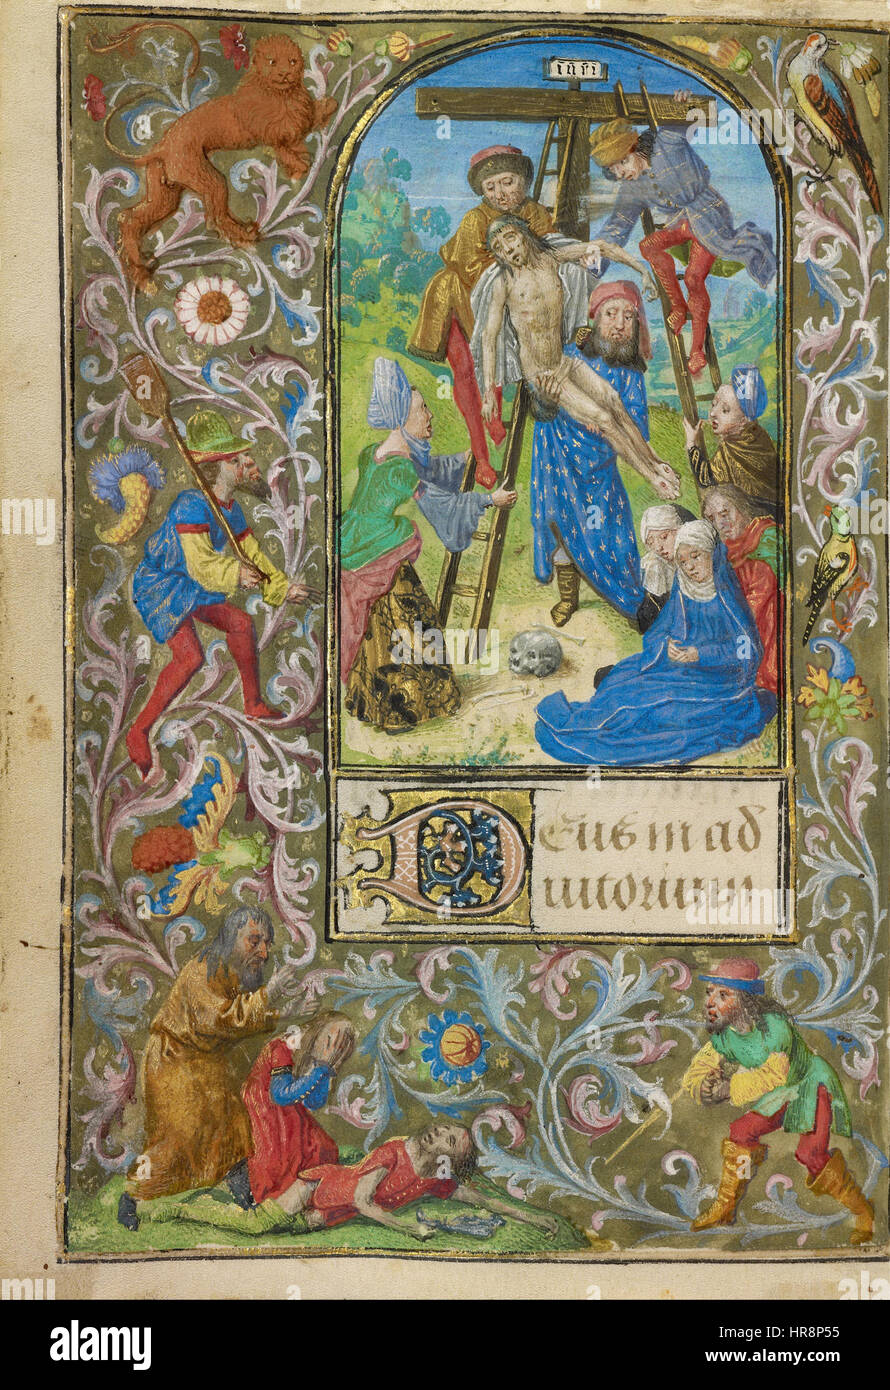 inri
Deus in ad
iutorium
alamy
Image ID: HR8P55
www.alamy.com